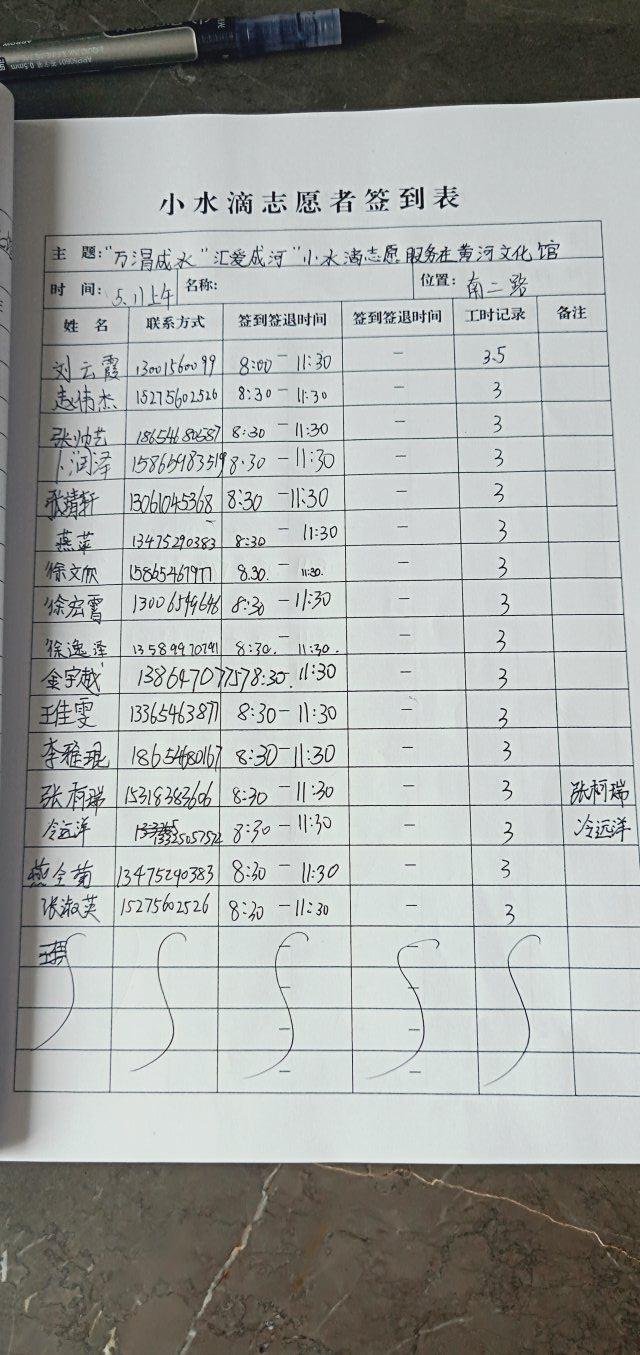 小水滴志愿者签到表
主 题: "万涓成水"汇爱成河"小水滴志愿服务在黄河文化馆
时 间: 5.11上午 名称: 位置: 南二路
姓 名 联系方式 签到签退时间 签到签退时间 工时记录 备注
刘云霞 13001560099 8:00 - 11:30 - 3.5
赵伟杰 15275602526 8:30 - 11:30 - 3
18654680587 8:30 - 11:30 - 3
卜润泽 15865483519 8:30 - 11:30 - 3
张靖轩 13061045368 8:30 - 11:30 - 3
燕苹 13475290383 8:30 - 11:30 - 3
徐文欣 15865467977 8.30. - 11:30. - 3
徐宏霄 13006549646 8:30 - 11:30 - 3
徐逸泽 13589970791 8:30. - 11:30. - 3
金宇越 13864707757 8:30. 11:30 - 3
王佳雯 13365463877 8:30 - 11:30 - 3
李雅琨 18654680167 8:30 - 11:30 - 3
张柯瑞 15318383606 8:30 - 11:30 - 3 张柯瑞
冷远洋 13325057572 8:30 - 11:30 - 3 冷远洋
燕全菊 13475290383 8:30 - 11:30 - 3
张淑英 15275602526 8:30 - 11:30 - 3
- -
- -
- -
- -